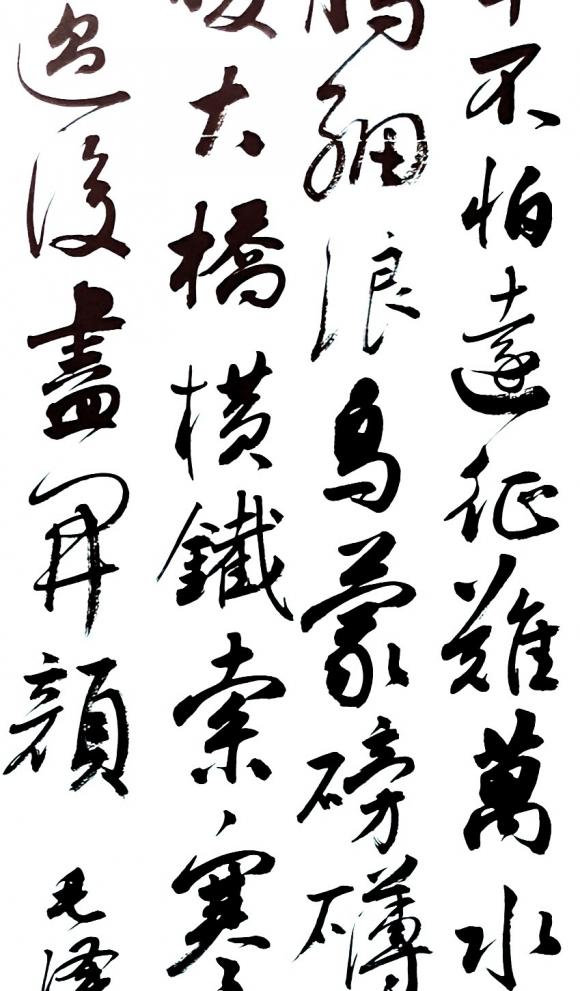 不怕遠征難萬水
細浪烏蒙磅礴
大橋橫鐵索寒
過後盡開顏
毛澤